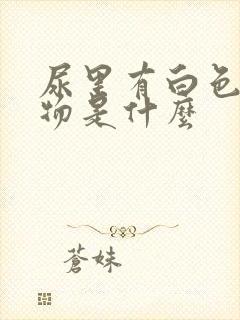 尿里有白色
物是什麼
蒼妹